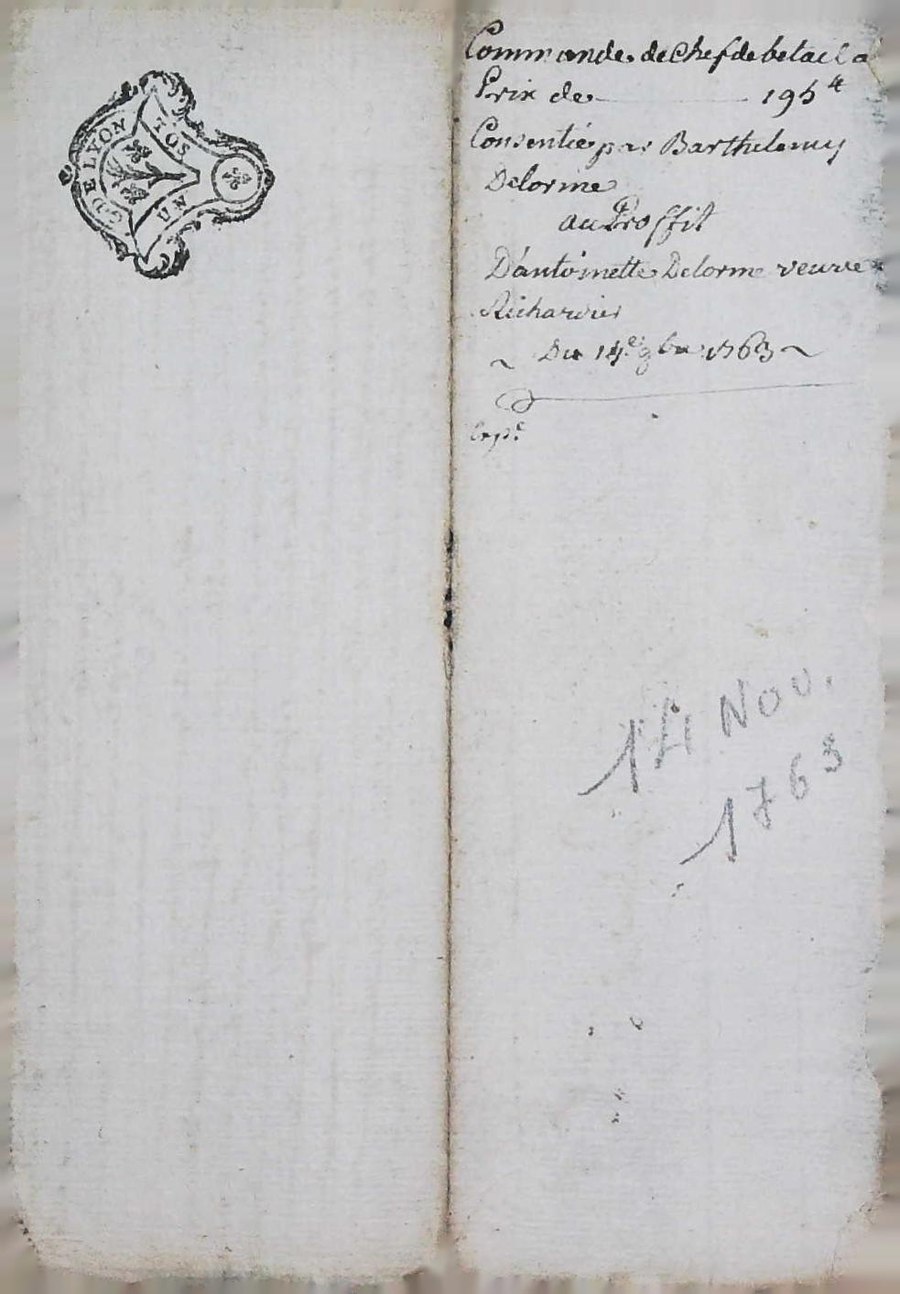 G. DE LYON
UN SOL
Commande de Chef de betail a
Prix de 195 ₶
Consentie par Barthelemy
Delorme
au Proffit
D'antoinette Delorme veuve
Du 14e 9bre 1763
Exp.e
14 Nov.
1763